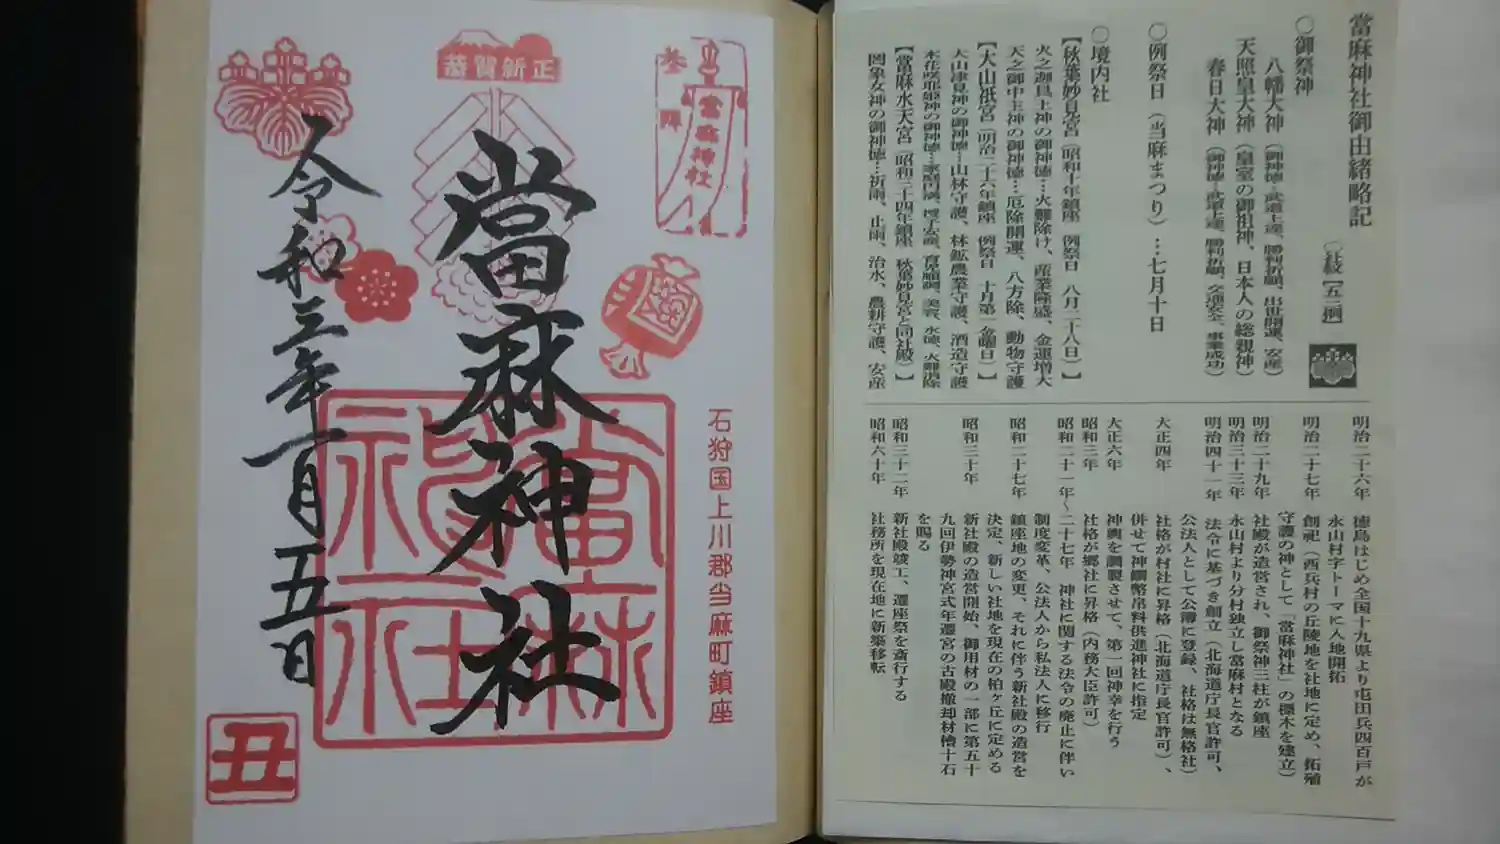 當麻神社御由緒略記
(社紋【五三桐】
〇御祭神
八幡大神(御神徳…武道上達、勝利祈願、出世開運、安産)
天照皇大神(皇室の御祖神、日本人の総親神)
春日大神(御神徳…武道上達、勝利祈願、交通安全、事業成功)
〇例祭日(当麻まつり)…七月十日
〇境内社
【秋葉妙見宮(昭和十年鎮座 例祭日 八月二十八日)】
火之迦具土神の御神徳…火難除け、産業隆盛、金運増大
天之御中主神の御神徳…厄除開運、八方除、動物守護
【大山祇宮(明治二十六年鎮座 例祭日 十月第一金曜日)】
大山津見神の御神徳…山林守護、林鉱農業守護、酒造守護
木花咲耶姫神の御神徳…家庭円満、授子安産、育児願満、美容、水徳、火難消除
【當麻水天宮(昭和三十四年鎮座 秋葉妙見宮と同社殿)】
罔象女神の御神徳…祈雨、止雨、治水、農耕守護、安産
明治二十六年 徳島はじめ全国十九県より屯田兵四百戸が
永山村字トーマに入地開拓
明治二十七年 創祀(西兵村の丘陵地を社地に定め、拓殖
守護の神として「當麻神社」の標木を建立)
明治二十九年 社殿が造営され、御祭神三柱が鎮座
明治三十三年 永山村より分村独立し當麻村となる
明治四十一年 法令に基づき創立(北海道庁長官許可、
公法人として公簿に登録、社格は無格社)
大正四年 社格が村社に昇格(北海道庁長官許可)、
併せて神饌幣帛料供進神社に指定
大正六年 神輿を調製させて、第一回神幸を行う
昭和三年 社格が郷社に昇格(内務大臣許可)
昭和二十一年~二十七年 神社に関する法令の廃止に伴い
制度変革、公法人から私法人に移行
昭和二十七年 鎮座地の変更、それに伴う新社殿の造営を
決定、新しい社地を現在の柏ヶ丘に定める
昭和三十年 新社殿の造営開始、御用材の一部に第五十
九回伊勢神宮式年遷宮の古殿撤却材檜十石
を賜る
昭和三十二年 新社殿竣工、遷座祭を斎行する
昭和六十年 社務所を現在地に新築移転
参拝
當麻神社
恭賀新正
石狩国上川郡当麻町鎮座
當麻神社
當麻神社
令和三年一月五日
丑